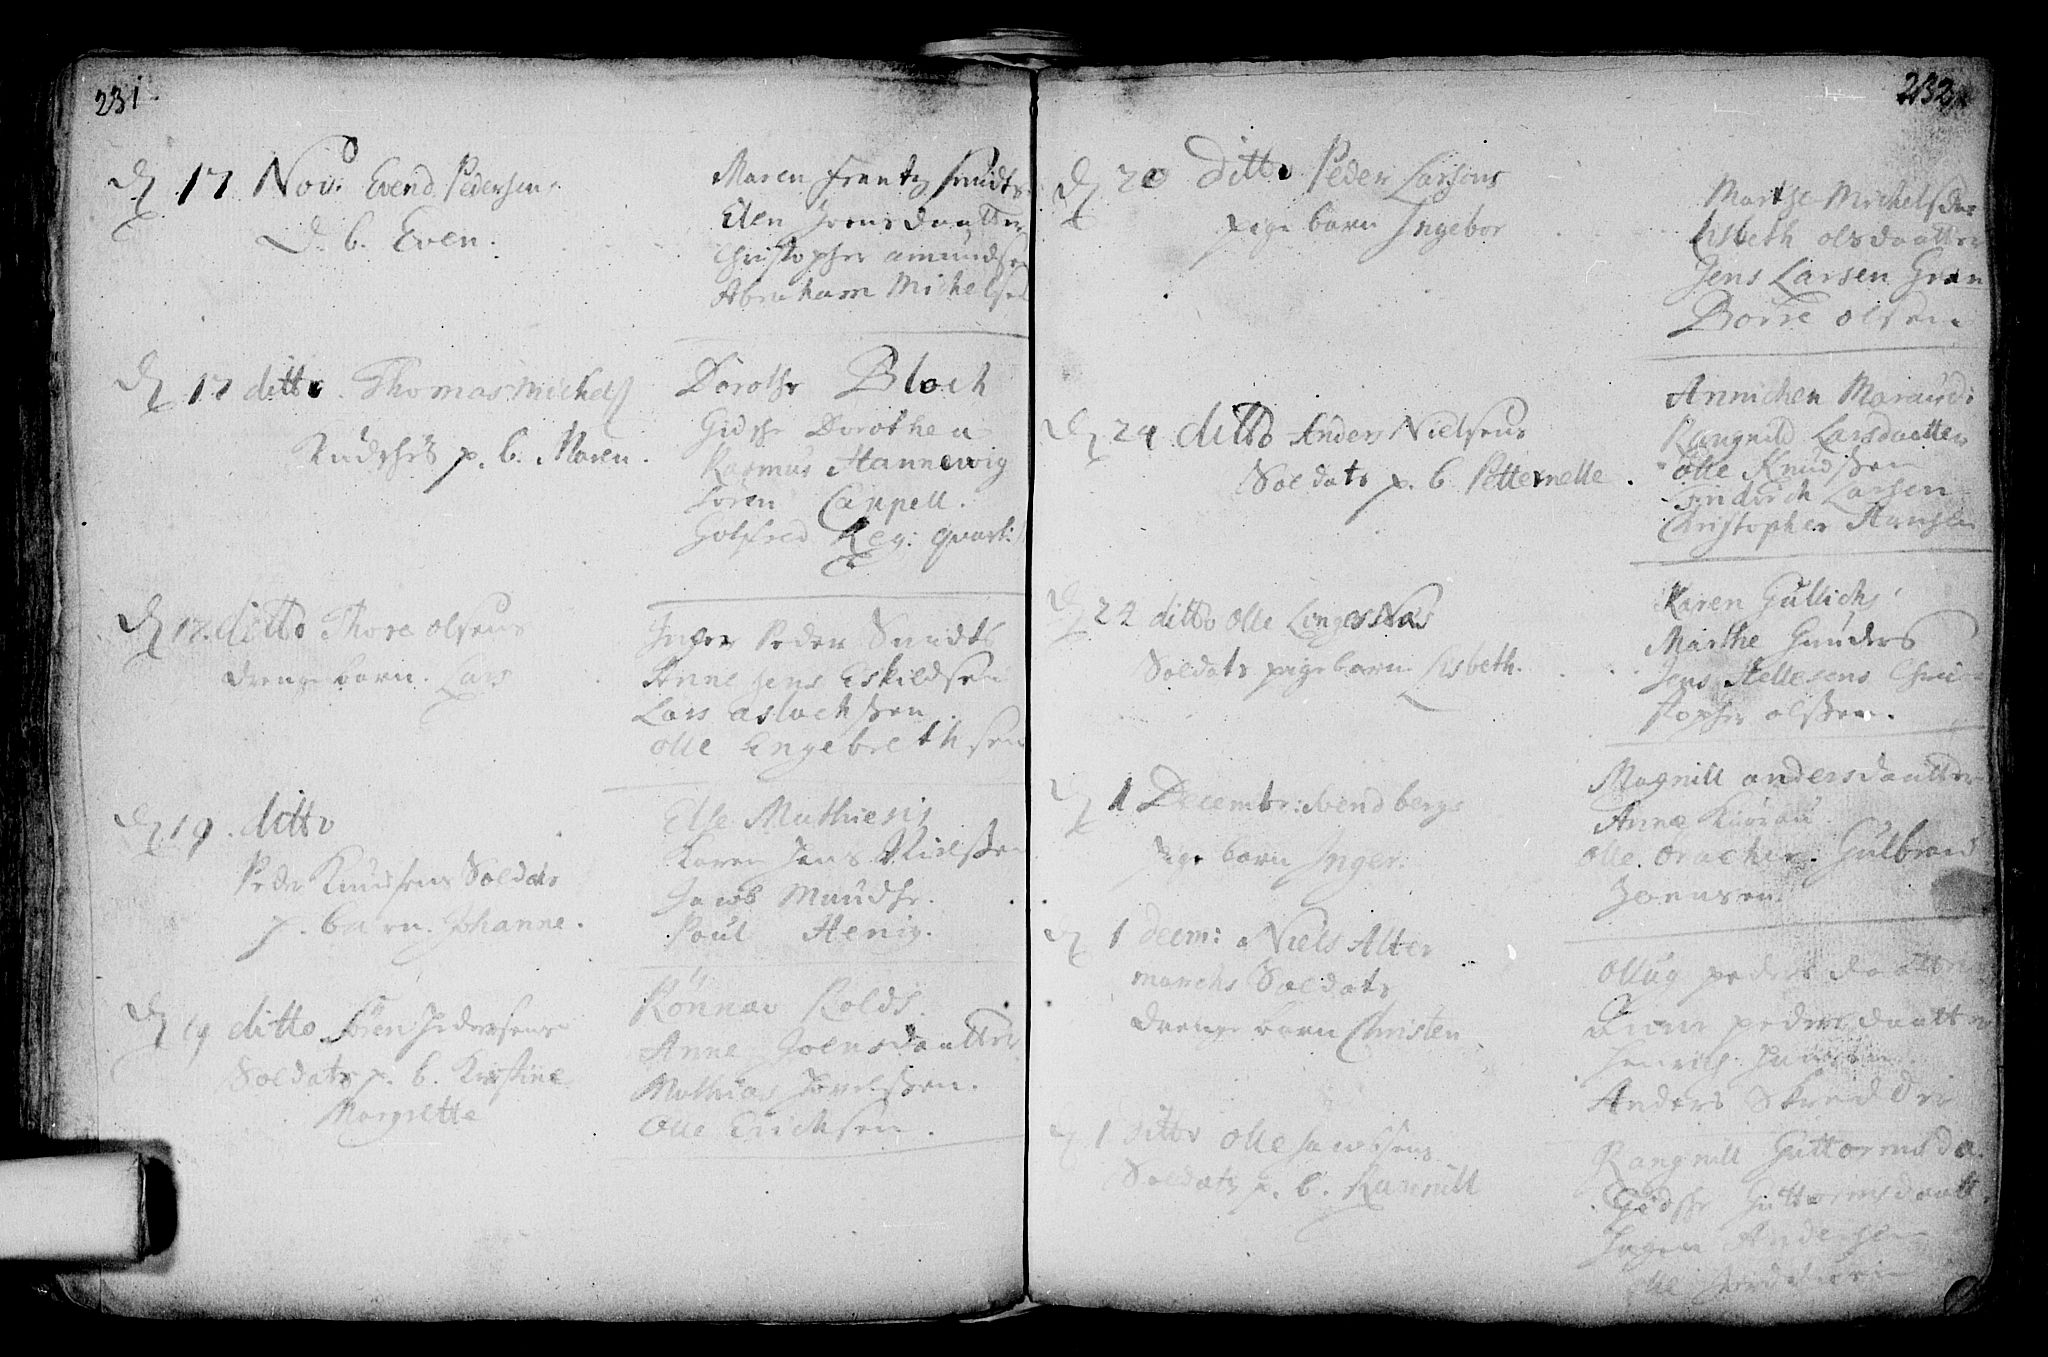 231
17 Nov. Evend Pedersens
D. b. Even.
Maren Frentz Smidts
Elen Joensdaatter
Christopher amundsen
Abraham Michelsen
17 ditto Thomas Michels
Knudsens p. b. Maren.
Dorothe Bloch
Gidshe Dorothea
Rasmus Hannewig
Sören Cappell.
Reg: quart:
17. ditto Thore olsens
drenge barn. Lars
Inger Peder Smidts
Anne Jens Eskildsen
Lars aslachssen
Olle Engebrethsen
19. ditto
Peder Knudsens Soldats
p. barn. Johanne.
Else Mathiesis
Karen Jens Nielssen
Jacob
Poul Henig.
19 ditto Sören Pedersens
Soldats p. b. Kirstine
Margrette
Rönnav Rolds.
Anne Joensdaatter
Mathias
Olle Erichsen.
232
20 ditto Peder Larsens
pige barn Ingebor
Marthe Michelsdar
Lisbeth olsdaatter
Jens Larsen Gran
Borre olsen
24 ditto Anders Nielsens
Soldats p. b. Petternelle.
Annichen
Rangnild Larsdaatter
Olle Knudssen
Larsen
Christopher Hansen
24 ditto Olle
Soldats pigebarn Lisbeth.
Karen Gullichs
Marthe Gunders
Jens Hellesens Chri-
stopher olssen.
1 Decembr: Svend bergs
pige barn Inger.
Magnill andersdaatter
Anne
Olle. Gulbrand
Joensen.
1 decem: Niels Alter
marchs Soldats
drenge barn Christen
Ollug peders daatter
peders daatter
Henrich
Anders Skredder
1 ditto Olle Jacobsens
Soldats p. b. Rannill
Rangnill Guttormsda.
Gidshe Guttormsdaatt.
Andersen
Olle